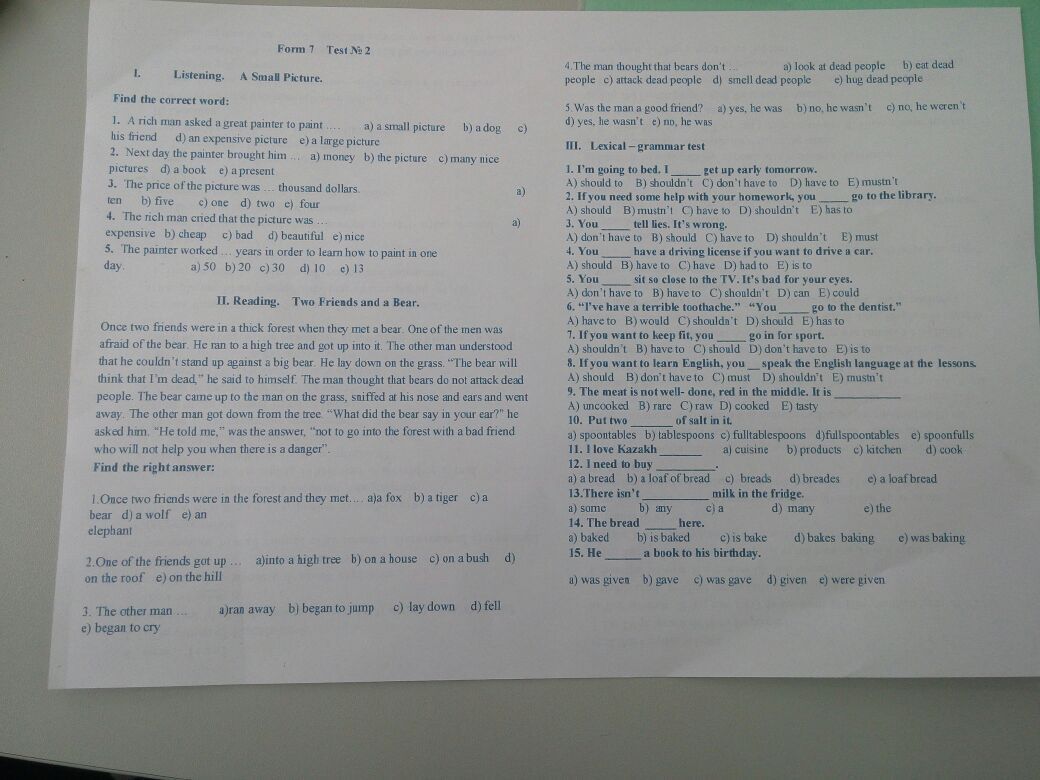 Form 7 Test № 2
I. Listening. A Small Picture.
Find the correct word:
1. A rich man asked a great painter to paint .... a) a small picture b) a dog c)
his friend d) an expensive picture e) a large picture
2. Next day the painter brought him ... a) money b) the picture c) many nice
pictures d) a book e) a present
3. The price of the picture was ... thousand dollars. a)
ten b) five c) one d) two e) four
4. The rich man cried that the picture was ... a)
expensive b) cheap c) bad d) beautiful e) nice
5. The painter worked ... years in order to learn how to paint in one
day. a) 50 b) 20 c) 30 d) 10 e) 13
II. Reading. Two Friends and a Bear.
Once two friends were in a thick forest when they met a bear. One of the men was
afraid of the bear. He ran to a high tree and got up into it. The other man understood
that he couldn't stand up against a big bear. He lay down on the grass. “The bear will
think that I'm dead,” he said to himself. The man thought that bears do not attack dead
people. The bear came up to the man on the grass, sniffed at his nose and ears and went
away. The other man got down from the tree. “What did the bear say in your ear?” he
asked him. “He told me,” was the answer, “not to go into the forest with a bad friend
who will not help you when there is a danger”.
Find the right answer:
1.Once two friends were in the forest and they met.... a)a fox b) a tiger c) a
bear d) a wolf e) an
elephant
2.One of the friends got up ... a)into a high tree b) on a house c) on a bush d)
on the roof e) on the hill
3. The other man ... a)ran away b) began to jump c) lay down d) fell
e) began to cry
4.The man thought that bears don't ... a) look at dead people b) eat dead
people c) attack dead people d) smell dead people e) hug dead people
5.Was the man a good friend? a) yes, he was b) no, he wasn't c) no, he weren't
d) yes, he wasn't e) no, he was
III. Lexical – grammar test
1. I'm going to bed. I _____ get up early tomorrow.
A) should to B) shouldn't C) don't have to D) have to E) mustn't
2. If you need some help with your homework, you _____ go to the library.
A) should B) mustn't C) have to D) shouldn't E) has to
3. You _____ tell lies. It's wrong.
A) don't have to B) should C) have to D) shouldn't E) must
4. You _____ have a driving license if you want to drive a car.
A) should B) have to C) have D) had to E) is to
5. You _____ sit so close to the TV. It's bad for your eyes.
A) don't have to B) have to C) shouldn't D) can E) could
6. “I've have a terrible toothache.” “You _____ go to the dentist.”
A) have to B) would C) shouldn't D) should E) has to
7. If you want to keep fit, you _____ go in for sport.
A) shouldn't B) have to C) should D) don't have to E) is to
8. If you want to learn English, you __ speak the English language at the lessons.
A) should B) don't have to C) must D) shouldn't E) mustn't
9. The meat is not well- done, red in the middle. It is ___________
A) uncooked B) rare C) raw D) cooked E) tasty
10. Put two _______ of salt in it.
a) spoontables b) tablespoons c) fulltablespoons d)fullspoontables e) spoonfulls
11. I love Kazakh _______ a) cuisine b) products c) kitchen d) cook
12. I need to buy __________.
a) a bread b) a loaf of bread c) breads d) breades e) a loaf bread
13.There isn't ___________ milk in the fridge.
a) some b) any c) a d) many e) the
14. The bread _____ here.
a) baked b) is baked c) is bake d) bakes baking e) was baking
15. He ______ a book to his birthday.
a) was given b) gave c) was gave d) given e) were given